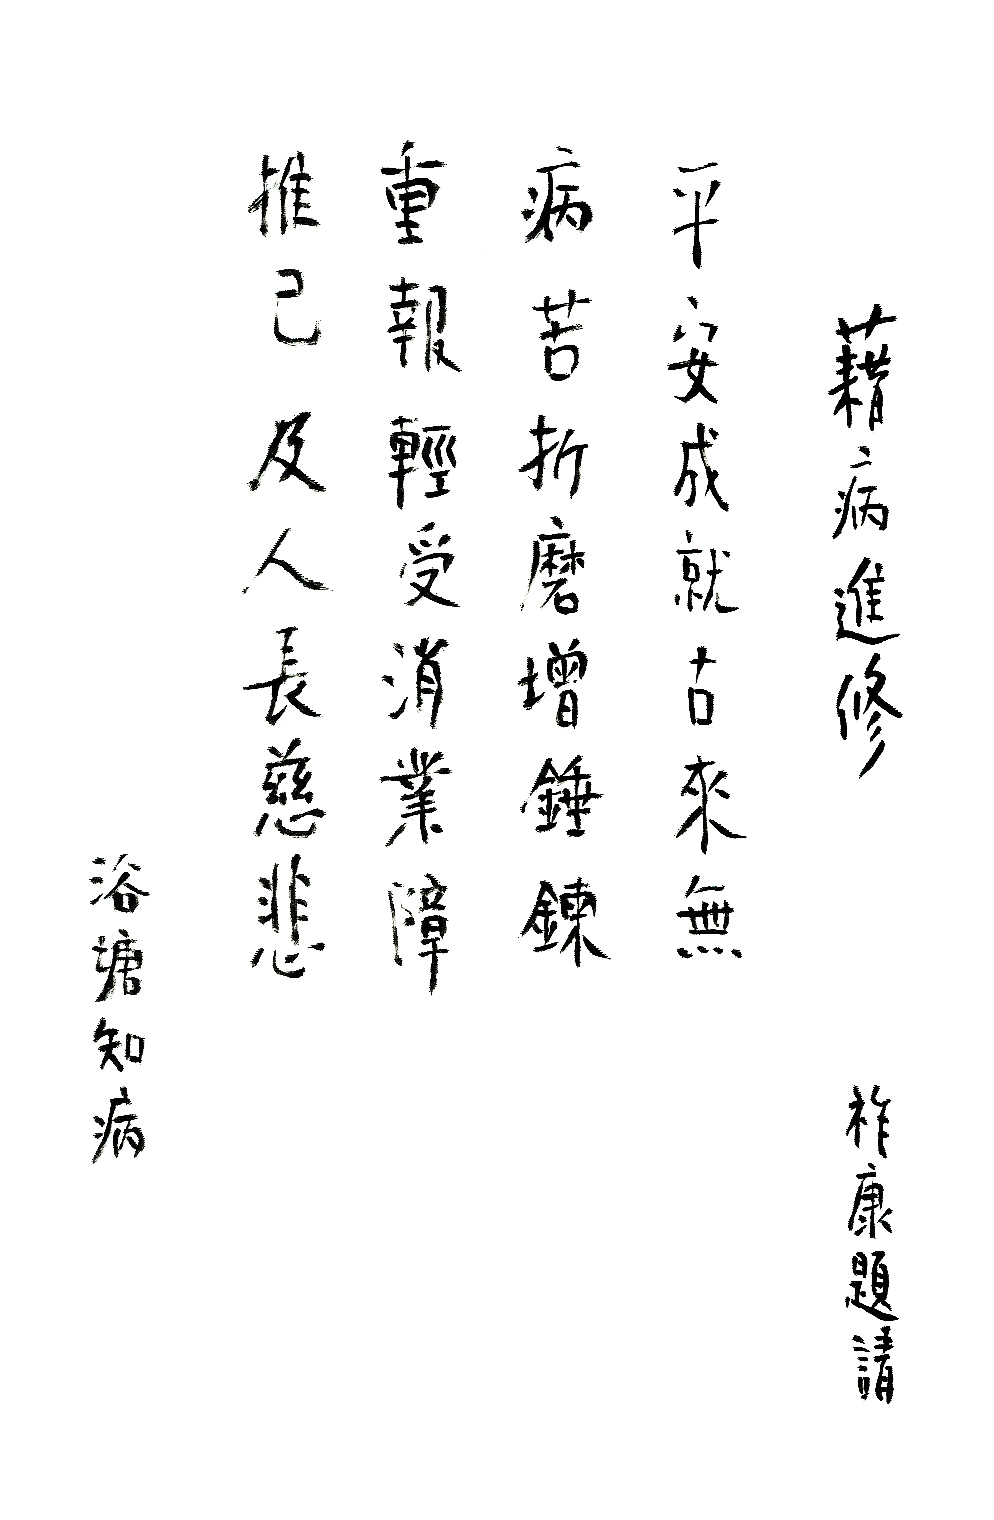 藉病進修
祚康題請
平安成就古來無
病苦折磨增錘鍊
重報輕受消業障
推己及人長慈悲
浴塘知病